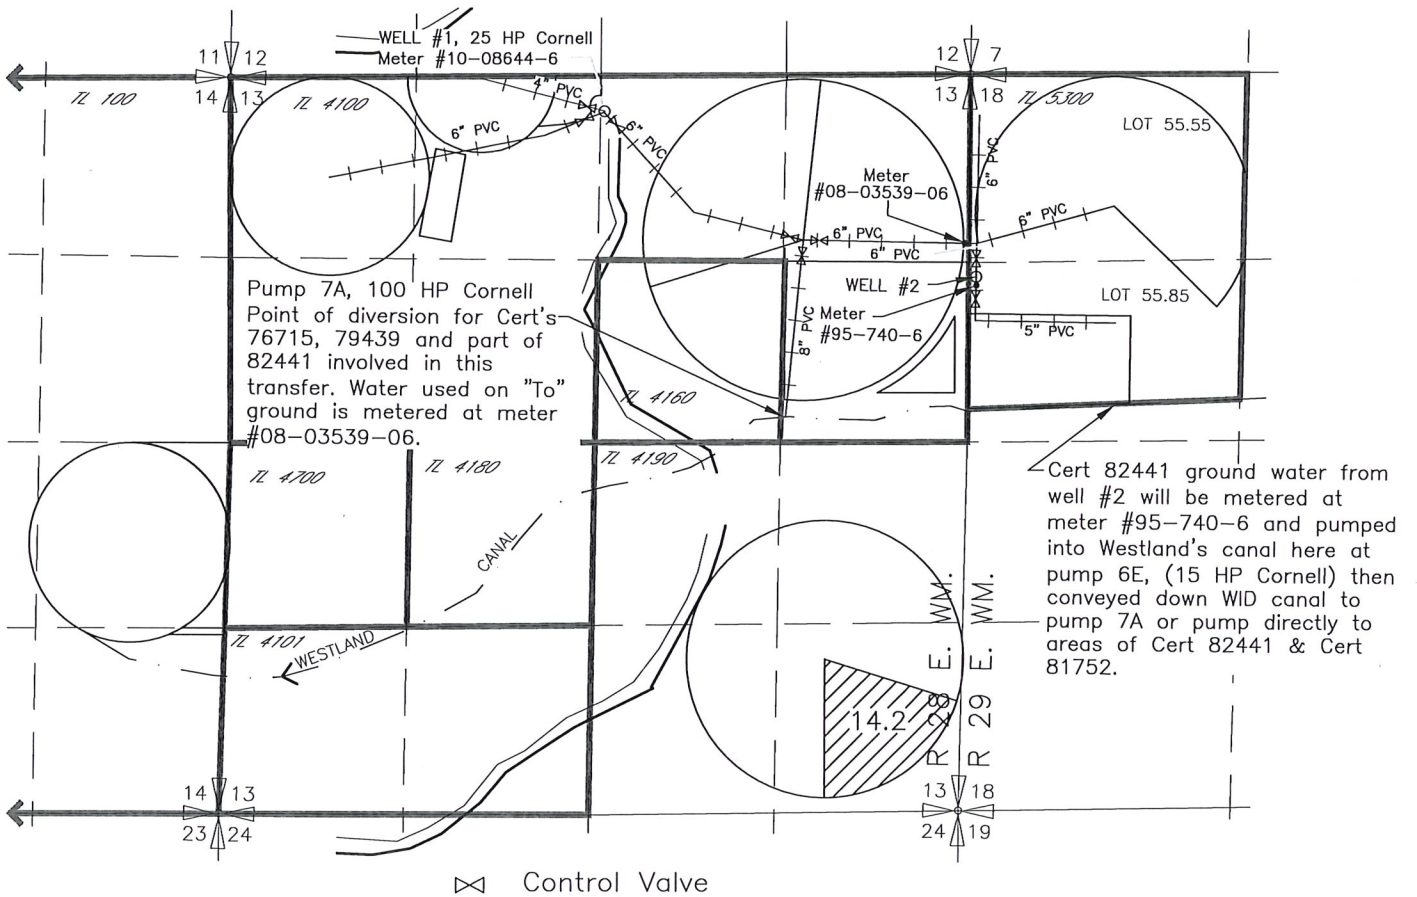 WELL #1, 25 HP Cornell
Meter #10-08644-6
11 12
14 13
12 7
13 18
TL 100
TL 4100
4" PVC
6" PVC
6" PVC
TL 5300
LOT 55.55
6" PVC
Meter
#08-03539-06
6" PVC
6" PVC
6" PVC
WELL #2
Meter
#95-740-6
8" PVC
LOT 55.85
5" PVC
Pump 7A, 100 HP Cornell
Point of diversion for Cert's
76715, 79439 and part of
82441 involved in this
transfer. Water used on "To"
ground is metered at meter
#08-03539-06.
TL 4160
TL 4700
TL 4180
TL 4190
Cert 82441 ground water from
well #2 will be metered at
meter #95-740-6 and pumped
into Westland's canal here at
pump 6E, (15 HP Cornell) then
conveyed down WID canal to
pump 7A or pump directly to
areas of Cert 82441 & Cert
81752.
CANAL
WESTLAND
TL 4101
14.2
R 28 E. WM.
R 29 E. WM.
14 13
23 24
13 18
24 19
Control Valve